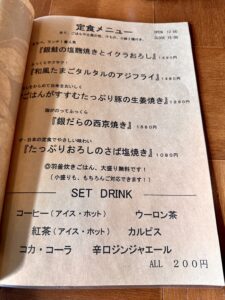 定食メニュー
OPEN 12:00
『銀鮭の塩麹焼きとイクラおろし』
『和風たまごタルタルのアジフライ』
ごはんがすすむたっぷり豚の生姜焼き』
『銀だらの西京焼き』
『たっぷりおろしのさば塩焼き』1080円
◎羽釜炊きごはん、大盛り無料です!
(小盛りも、もちろんご対応できます!)
SET DRINK
コーヒー(アイス・ホット) ウーロン茶
紅茶(アイス・ホット) カルピス
コカ・コーラ 辛口ジンジャエール
ALL 200円